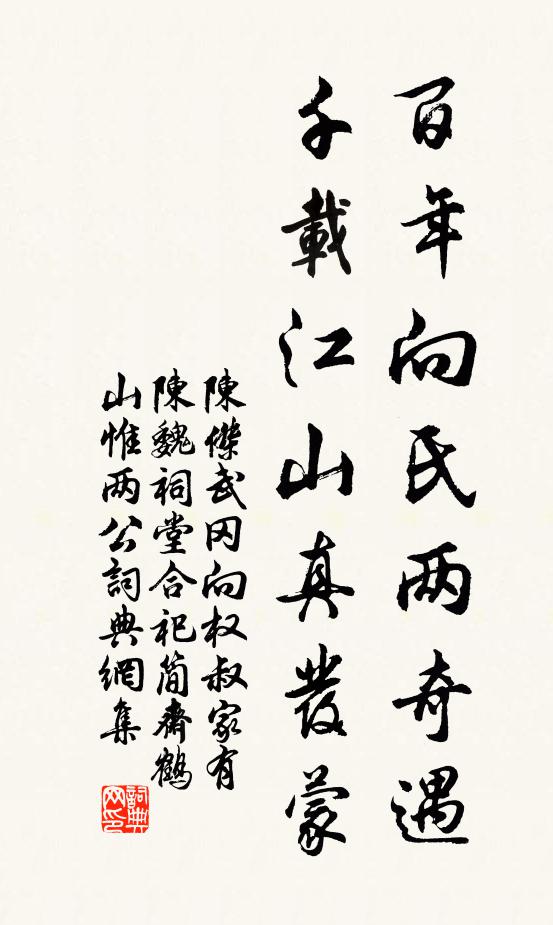 百年向氏两奇遇
千載江山真發蒙
陳傑武冈向权叔家有
陳魏祠堂合祀简齋鶴
山惟两公詞典網集
詞典网印